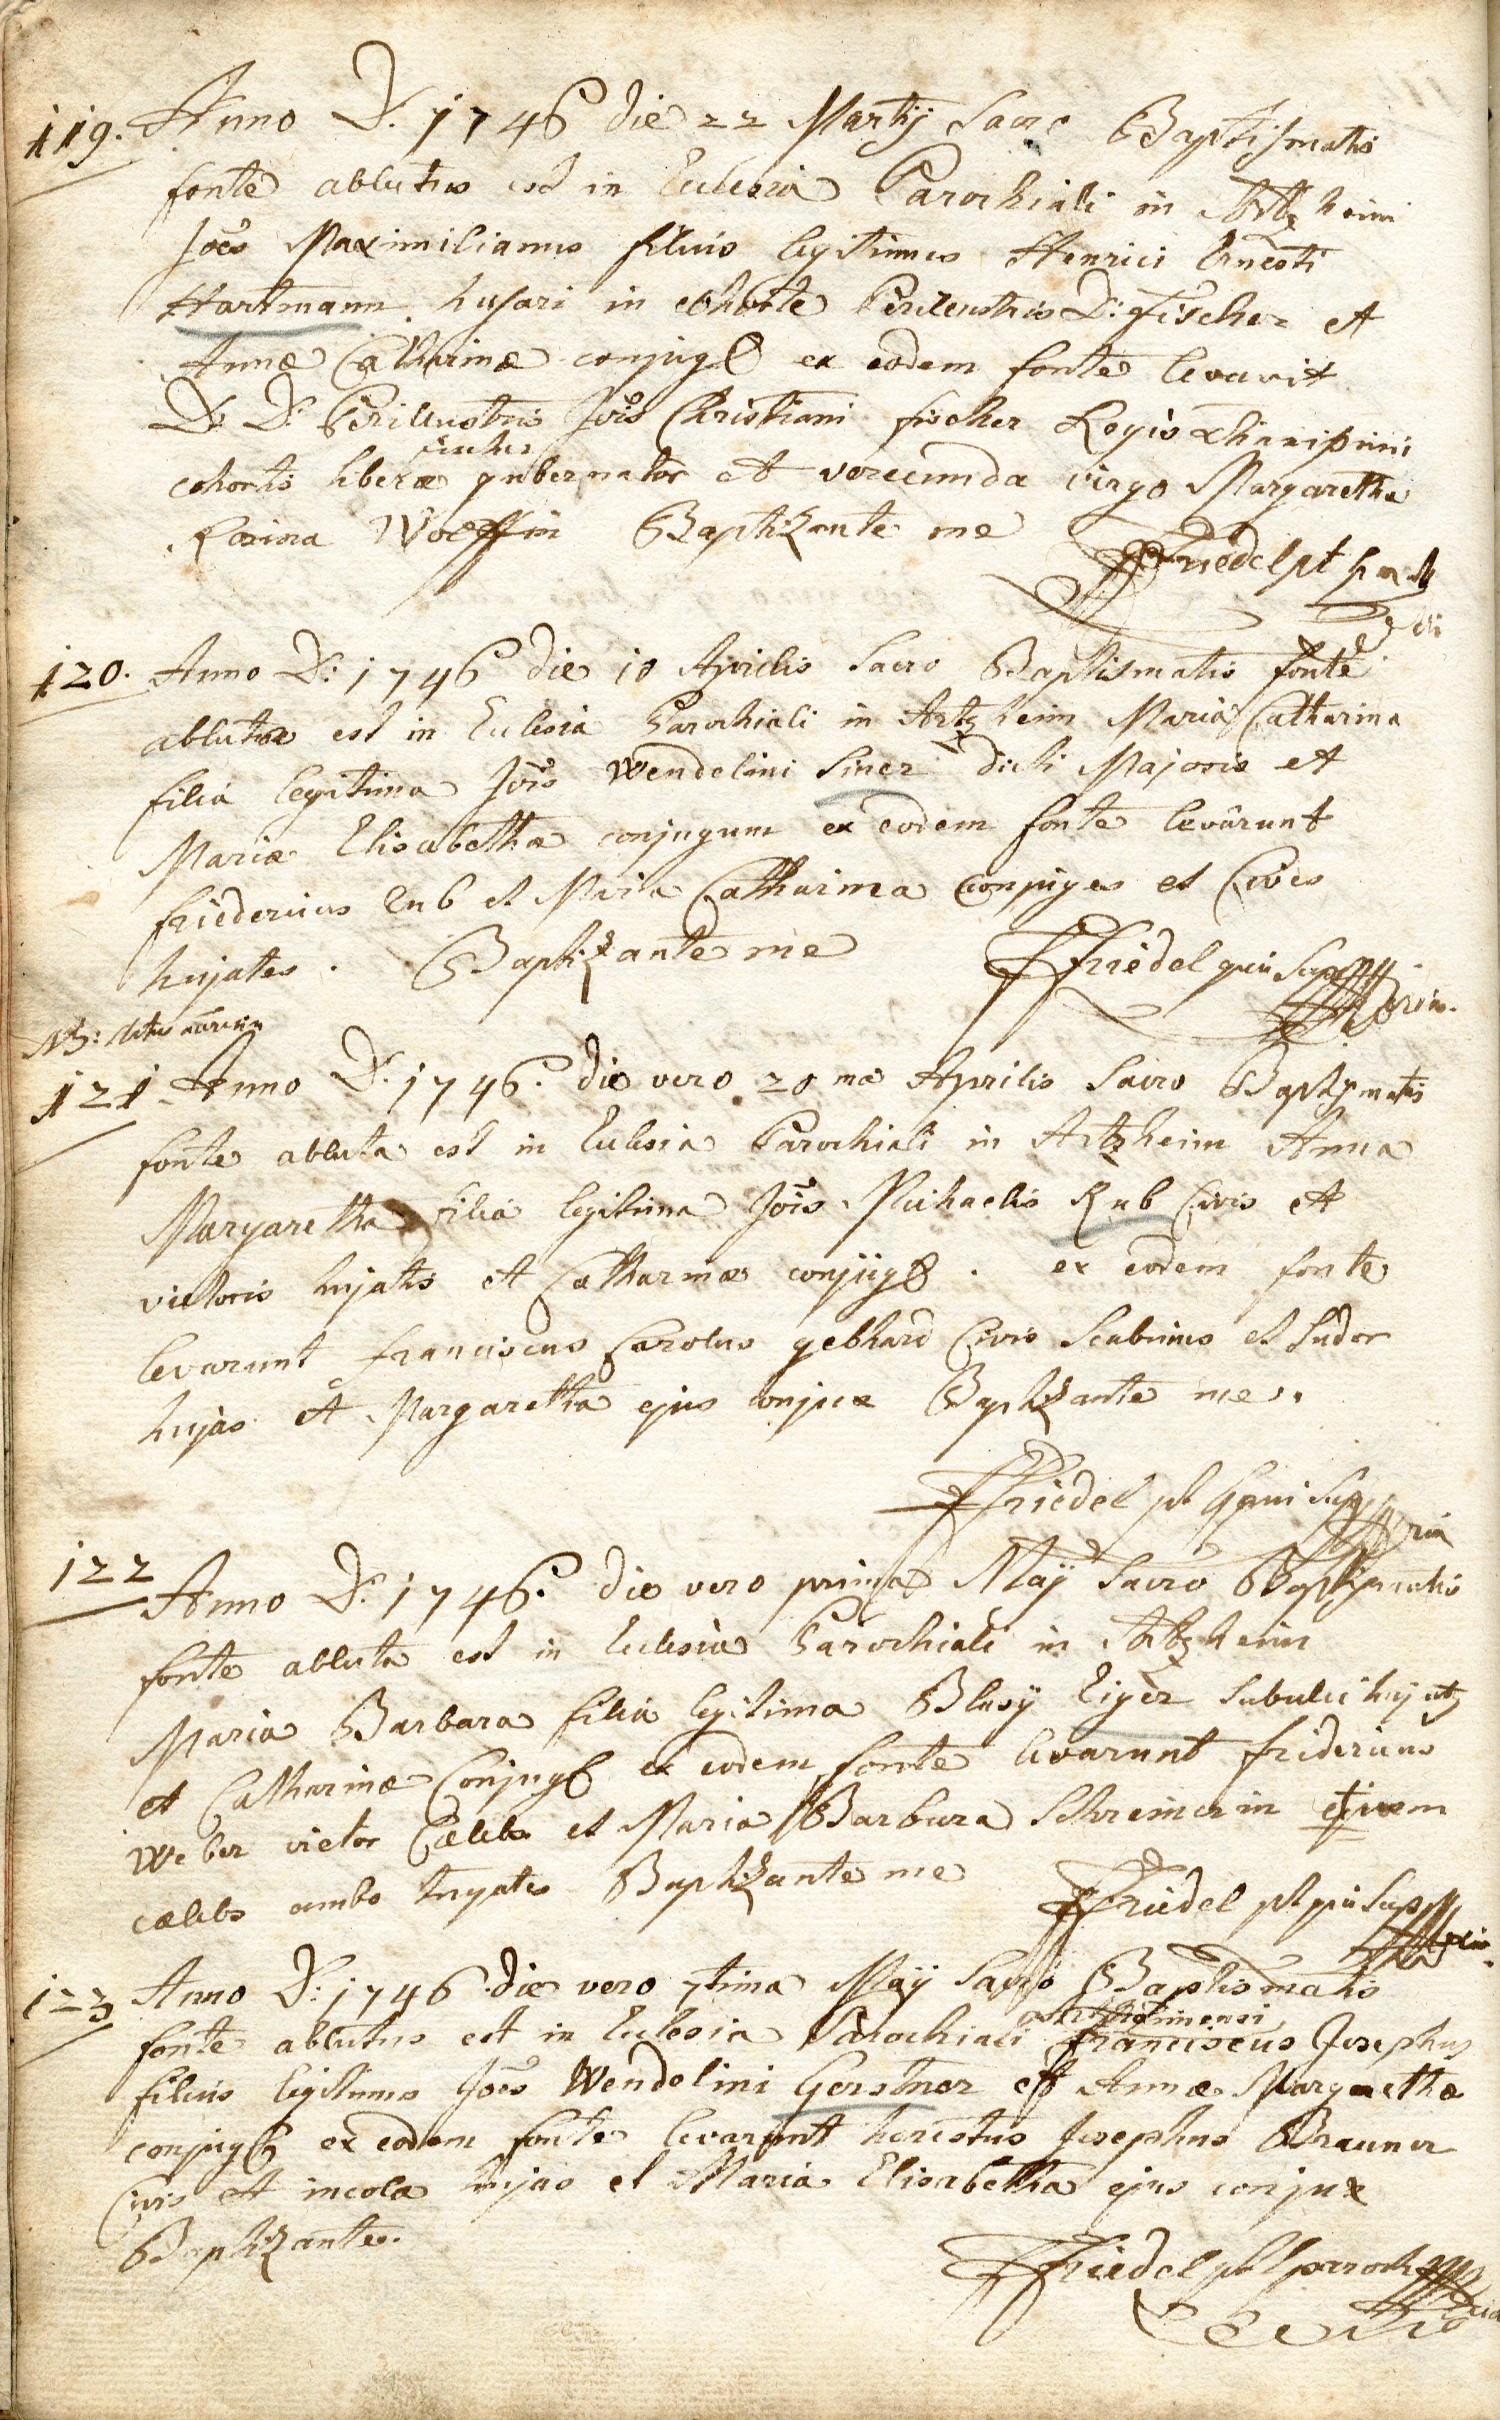 119. Anno D. 1746 die 22 Martij Sacro Baptismatis
fonte ablutus est in Eclesia Parochiali in Artzheim
Joēs Maximilianus filius legitimus Henrici Ernesti
Hartmann husari in cohorte Perillustris D: Fischer et
Annæ Catharinæ conjug ex eodem fonte levavit
D. D. Perillustris Jois Christiani fischer Regis
cohortis liberæ gubernator et verecunda virgo Margaretha
Rosina Baptizante me
Friedel pt
120. Anno D: 1746 die 10 Aprilis Sacro Baptismatis fonte
abluta est in Eclesia Parochiali in Artzheim Maria Catharina
filia legitima Jois Wendelini Siner dicti Majoris et
Mariæ Elisabethæ conjugum ex eodem fonte levārunt
friedericus Rub et Maria Catharina conjuges et Cives
hujates. Baptizante me
Friedel qui Sup
NB:
121 Anno D. 1746. die vero 20 ma Aprilis Sacro Baptismatis
fonte abluta est in Eclesia Parochiali in Artzheim Anna
Margaretha filia legitima Jois Michaelis Rub Civis et
victoris hujatis et Catharinæ conjug. ex eodem fonte
levarunt franciscus Carolus gebhard Civis Scabinus et Sudor
hujas et Margaretha ejus conjux Baptizante me.
Friedel pt qui Sup
122 Anno D. 1746. die vero prima Maÿ Sacro Baptismatis
fonte abluta est in Eclesia Parochiali in Artzheim
Maria Barbara filia legitima Blasÿ Eiger Subulci hujatis
et Catharinæ Conjug ex eodem fonte levarunt fridericus
Weber victor Cælebs et Maria Barbara Schreinerin
cælebs ambo hujates Baptizante me
Friedel pt qui Sup
123 Anno D: 1746 die vero 7tima Maÿ Sacro Baptismatis
fonte ablutus est in Eclesia Parochiali franciscus Josephus
filius legitimus Joēs Wendelini Gerstner et Annæ Margarethæ
conjug ex eodem fonte levarunt honestus Josephus Brauner
Civis et incola hujas et Maria Elisabetha ejus conjux
Baptizante.
Friedel pt paroch